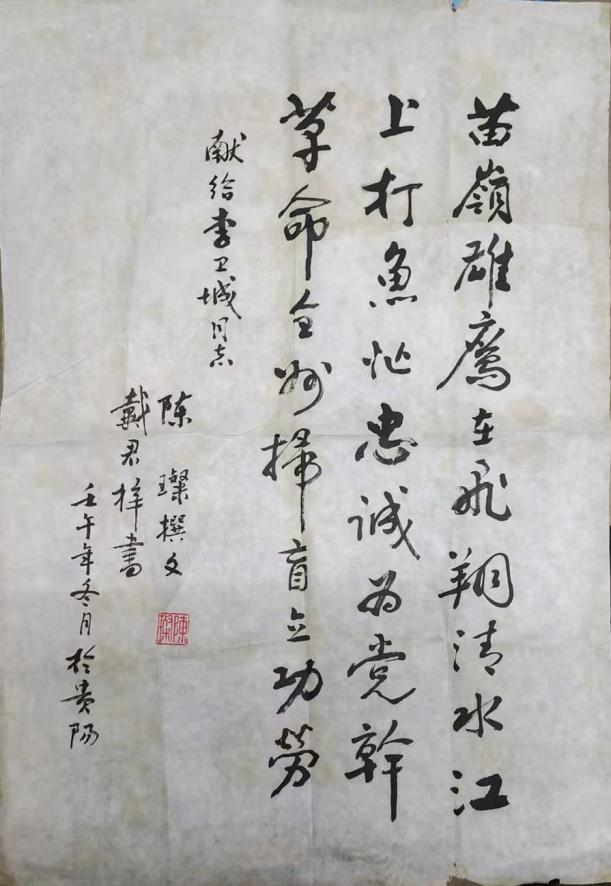 苗嶺雄鷹在飛翔清水江
上打魚忙忠誠为党幹
革命全州掃盲立功勞
献给李卫城同志
陈璨撰文
戴君祥書
壬午年冬月於貴陽
陳璨